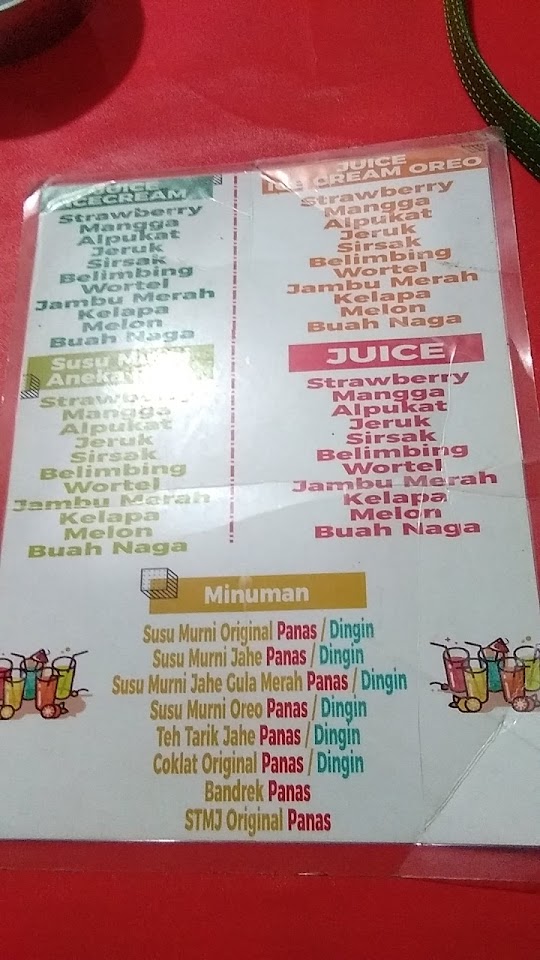 JUICE
ICECREAM
Strawberry
Mangga
Alpukat
Jeruk
Sirsak
Belimbing
Wortel
Jambu Merah
Kelapa
Melon
Buah Naga
JUICE
ICE CREAM OREO
Strawberry
Mangga
Alpukat
Jeruk
Sirsak
Belimbing
Wortel
Jambu Merah
Kelapa
Melon
Buah Naga
Susu
Aneka
Strawberry
Mangga
Alpukat
Jeruk
Sirsak
Belimbing
Wortel
Jambu Merah
Kelapa
Melon
Buah Naga
JUICE
Strawberry
Mangga
Alpukat
Jeruk
Sirsak
Belimbing
Wortel
Jambu Merah
Kelapa
Melon
Buah Naga
Minuman
Susu Murni Original Panas / Dingin
Susu Murni Jahe Panas / Dingin
Susu Murni Jahe Gula Merah Panas / Dingin
Susu Murni Oreo Panas / Dingin
Teh Tarik Jahe Panas / Dingin
Coklat Original Panas / Dingin
Bandrek Panas
STMJ Original Panas